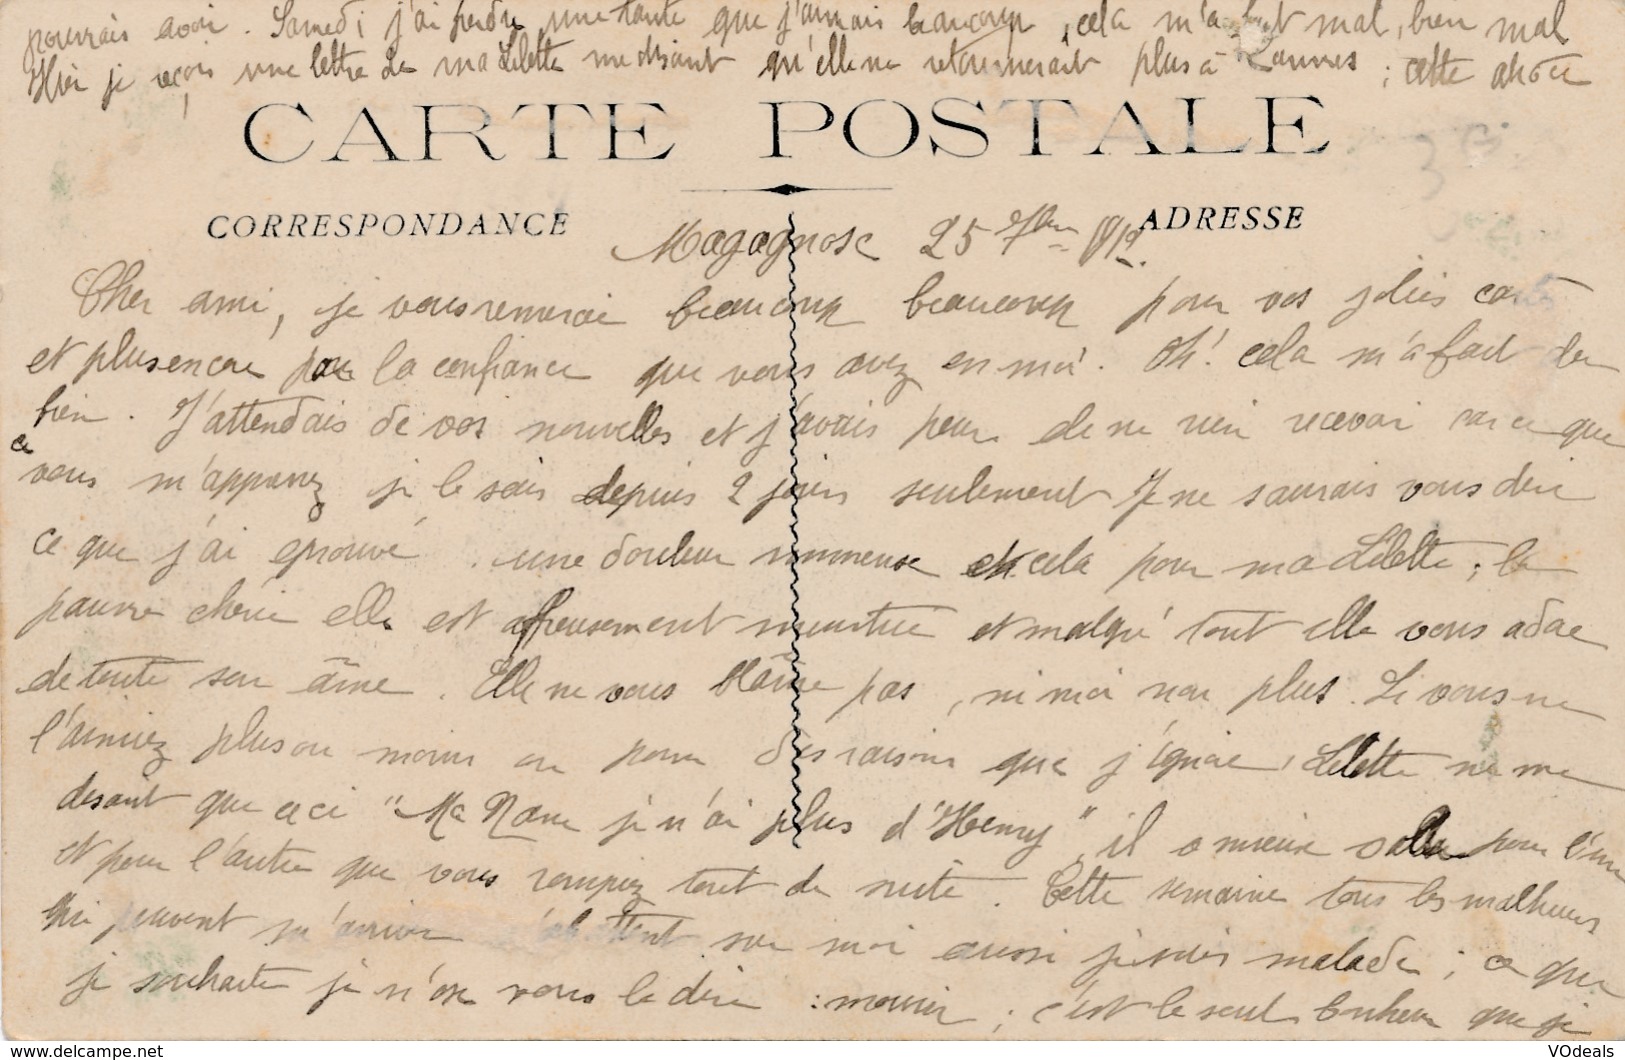 pouvrais avoir. Samedi j'ai perdu une tante que j'aimais beaucoup, cela m'a fait mal, bien mal
Hier je reçois une lettre de ma Lilette me disant qu'elle ne retournerait plus à Cannes ; cette
CARTE POSTALE
CORRESPONDANCE
ADRESSE
Magagnosc 25 7bre 1912
Cher ami, je vous remercie beaucoup beaucoup pour vos jolies cartes
et plus encore pour la confiance que vous avez en moi. Oh! cela m'a fait du
bien. J'attendais de vos nouvelles et j'avais peur de ne rien recevoir car ce que
vous m'apprenez je le sais depuis 2 jours seulement Je ne saurais vous dire
ce que j'ai éprouvé. une douleur immense et cela pour ma Lilette ; la
pauvre chérie elle est affreusement meurtrie et malgré tout elle vous adore
de toute son âme. Elle ne vous blâme pas, ni moi non plus. Si vous ne
l'aimiez plus ou moins ou pour des raisons que j'ignore, Lilette ne me
disant que ceci "Ma Nane je n'ai plus d'Henry", il a mieux valu pour l'un
et pour l'autre que vous rompiez tout de suite. Cette semaine tous les malheurs
qui peuvent m'arriver s'abattent sur moi aussi je suis malade ; ce que
je souhaite je n'ose vous le dire : mourir ; c'est le seul bonheur que je
VOdeals
www.delcampe.net